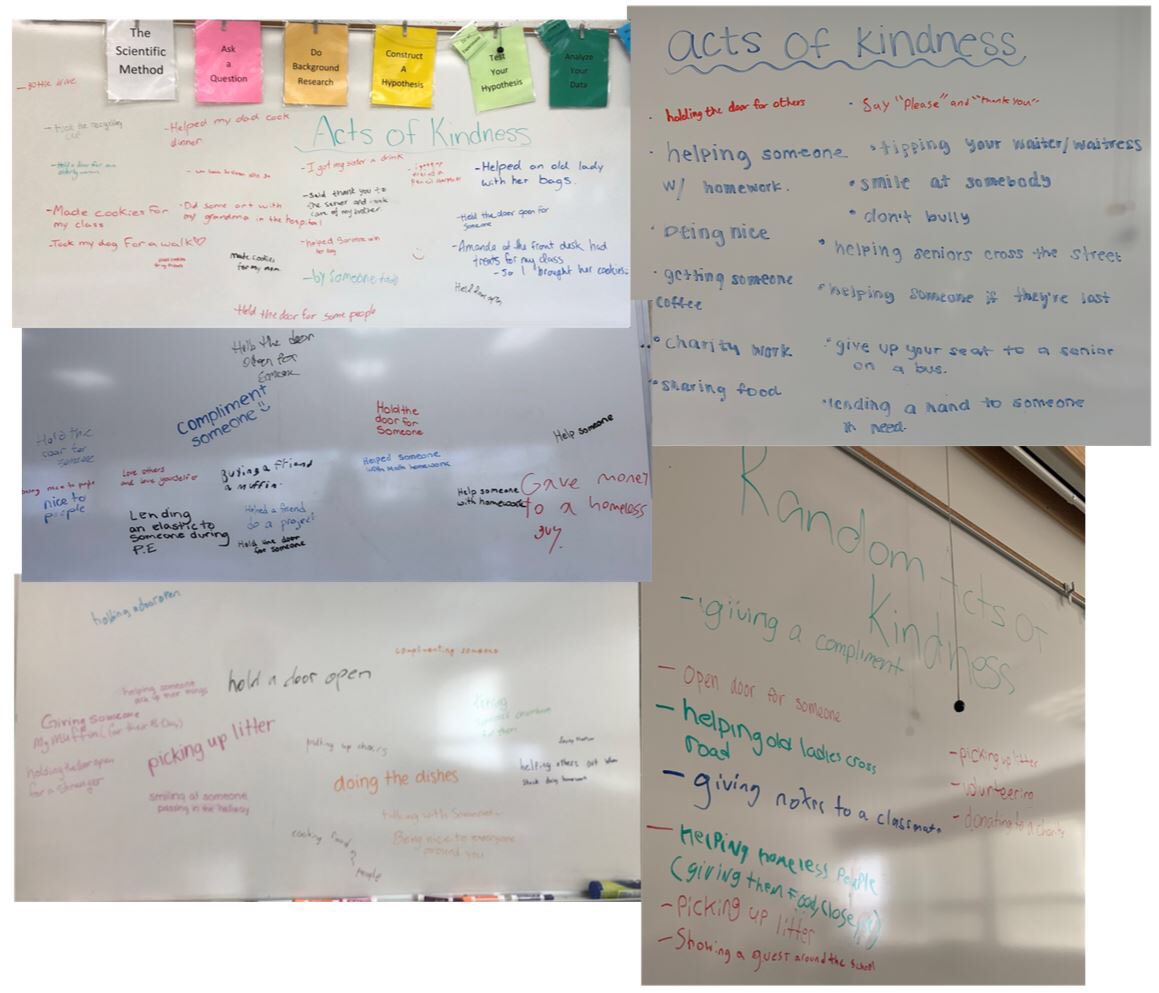 The
Scientific
Method
Ask
a
Question
Do
Background
Research
Construct
A
Hypothesis
Test
Your
Hypothesis
Analyze
Your
Data
Acts of Kindness
-Helped my dad cook
dinner
-Made cookies for
my class
-Took my dog for a walk
-Did some art with
my grandma in the hospital
made cookies
for my mom
-I got my sister a drink
-Said thank you to
the server and took
care of my brother
-helped someone
-by someone
-Helped an old lady
with her bags.
-Held the door open for
someone
-Amanda at the front desk had
treats for my class
- So I brought her cookies
Held the door for some people
acts of kindness
· holding the door for others
· helping someone
w/ homework.
· being nice
· getting someone
coffee
· charity work
· sharing food
· Say "Please" and "thank you"
· tipping your waiter/waitress
· smile at somebody
· don't bully
· helping seniors cross the street
· helping someone if they're lost
· give up your seat to a senior
on a bus.
· lending a hand to someone
in need.
the door
open for
someone
compliment
someone
Hold the
door for
someone
Hold the
door for
Someone
Help someone
nice to
people
Love others
and love yourself
Buying a friend
a muffin.
Helped someone
with math homework
Help someone
with homework
Gave money
to a homeless
guy.
Lending
an elastic to
someone during
P.E
Helped a friend
do a project
Hold the door
for someone
holding a door open
complimenting someone
hold a door open
helping someone
pick up their things
Giving someone
my muffin (for their B-Day)
picking up litter
holding the door open
for a stranger
smiling at someone
passing in the hallway
putting up chairs
doing the dishes
helping others out when
talking with someone
Being nice to everyone
around you
cooking food
people
Random Acts of
Kindness
- giving a compliment
- Open door for someone
- helping old ladies cross
road
- giving notes to a classmate
- Helping homeless people
(giving them food, close,
- Picking up litter
- Showing a guest around the school
- picking up litter
- volunteering
- donating to a charity